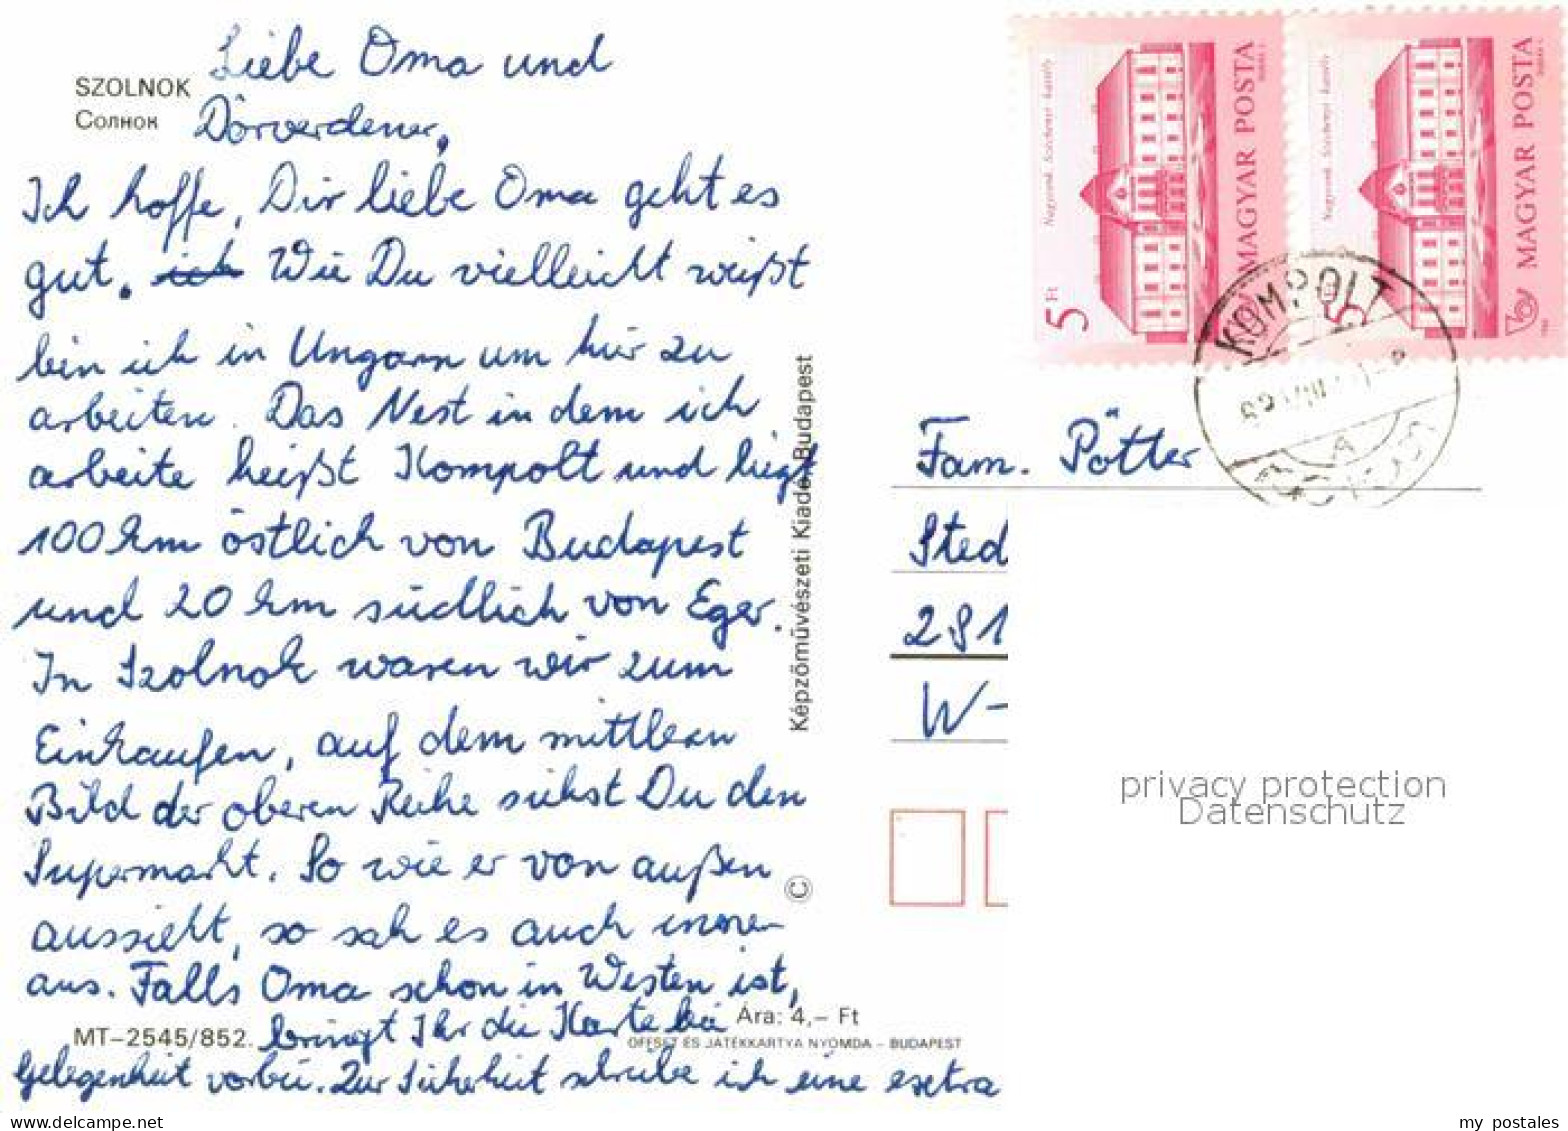 Liebe Oma und
SZOLNOK
Сопнок
Dörverdener,
Ich hoffe, Dir liebe Oma geht es
gut. ich Wie Du vielleicht weißt
bin ich in Ungarn um hier zu
arbeiten. Das Nest in dem ich
arbeite heißt Kompolt und liegt
100 km östlich von Budapest
und 20 km südlich von Eger.
In Szolnok waren wir zum
Einkaufen, auf dem mittleren
Bild der oberen Reihe siehst Du den
Supermarkt. So wie er von außen
aussieht, so sah es auch innen
aus. Falls Oma schon in Westen ist,
bringt Ihr die Karte bei
Gelegenheit vorbei. Zur Sicherheit schreibe ich eine esctra
MT-2545/852.
Ára: 4,- Ft
OFFSET ÉS JÁTÉKKÁRTYA NYOMDA - BUDAPEST
© Képzőművészeti Kiadó, Budapest
5 Ft
Nagycenk Széchenyi kastély
MAGYAR POSTA
5
Nagycenk Széchenyi kastély
MAGYAR POSTA
KOMPOLT
A
Fam. Pötter
Sted
281
W-
privacy protection
Datenschutz
my postales